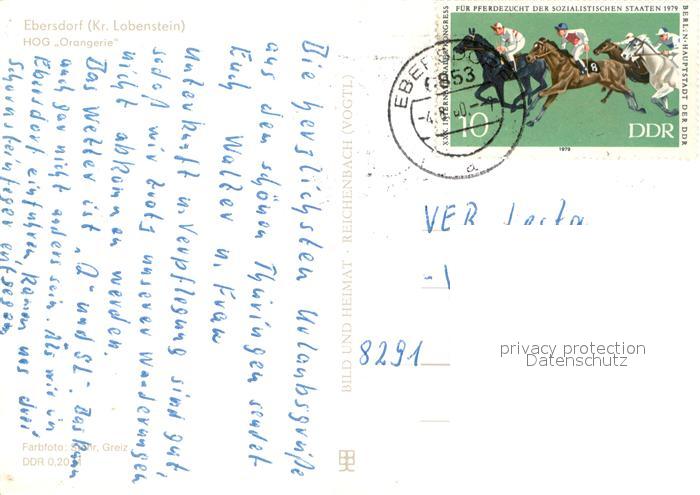 Ebersdorf (Kr. Lobenstein)
HOG „Orangerie"
Die herzlichsten Urlaubsgrüße
aus dem schönen Thüringen sendet
Euch Walter u. Frau
Unterkunft u. Verpflegung sind gut,
sodaß wir trotz unserer Wanderungen
nicht abkommen werden.
Das Wetter ist und Das kann
auch gar nicht anders sein. Als wir in
Ebersdorf einfuhren, kamen uns drei
Schornsteinfeger entgegen
Farbfoto: Greiz
DDR 0,20
BILD UND HEIMAT · REICHENBACH (VOGTL)
XXX. INTERNATIONALER KONGRESS
FÜR PFERDEZUCHT DER SOZIALISTISCHEN STAATEN 1979
BERLIN · HAUPTSTADT DER DDR
8
10
DDR
1979
EBERSDORF
6853
a
VEB
8291
privacy protection
Datenschutz